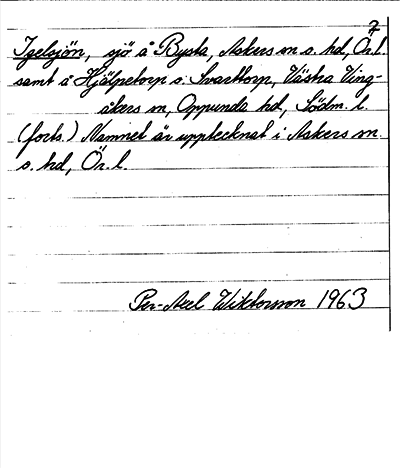 7
Igelsjön, sjö å Bysta, Askers sn o. hd, Ör. l.
samt å Hjälpetorp o. Svarttorp, Västra Ving-
åkers sn, Oppunda hd, Södm. l.
(forts.) Namnet är upptecknat i Askers sn.
o. hd, Ör. l.
Per-Axel Wiktorsson 1963